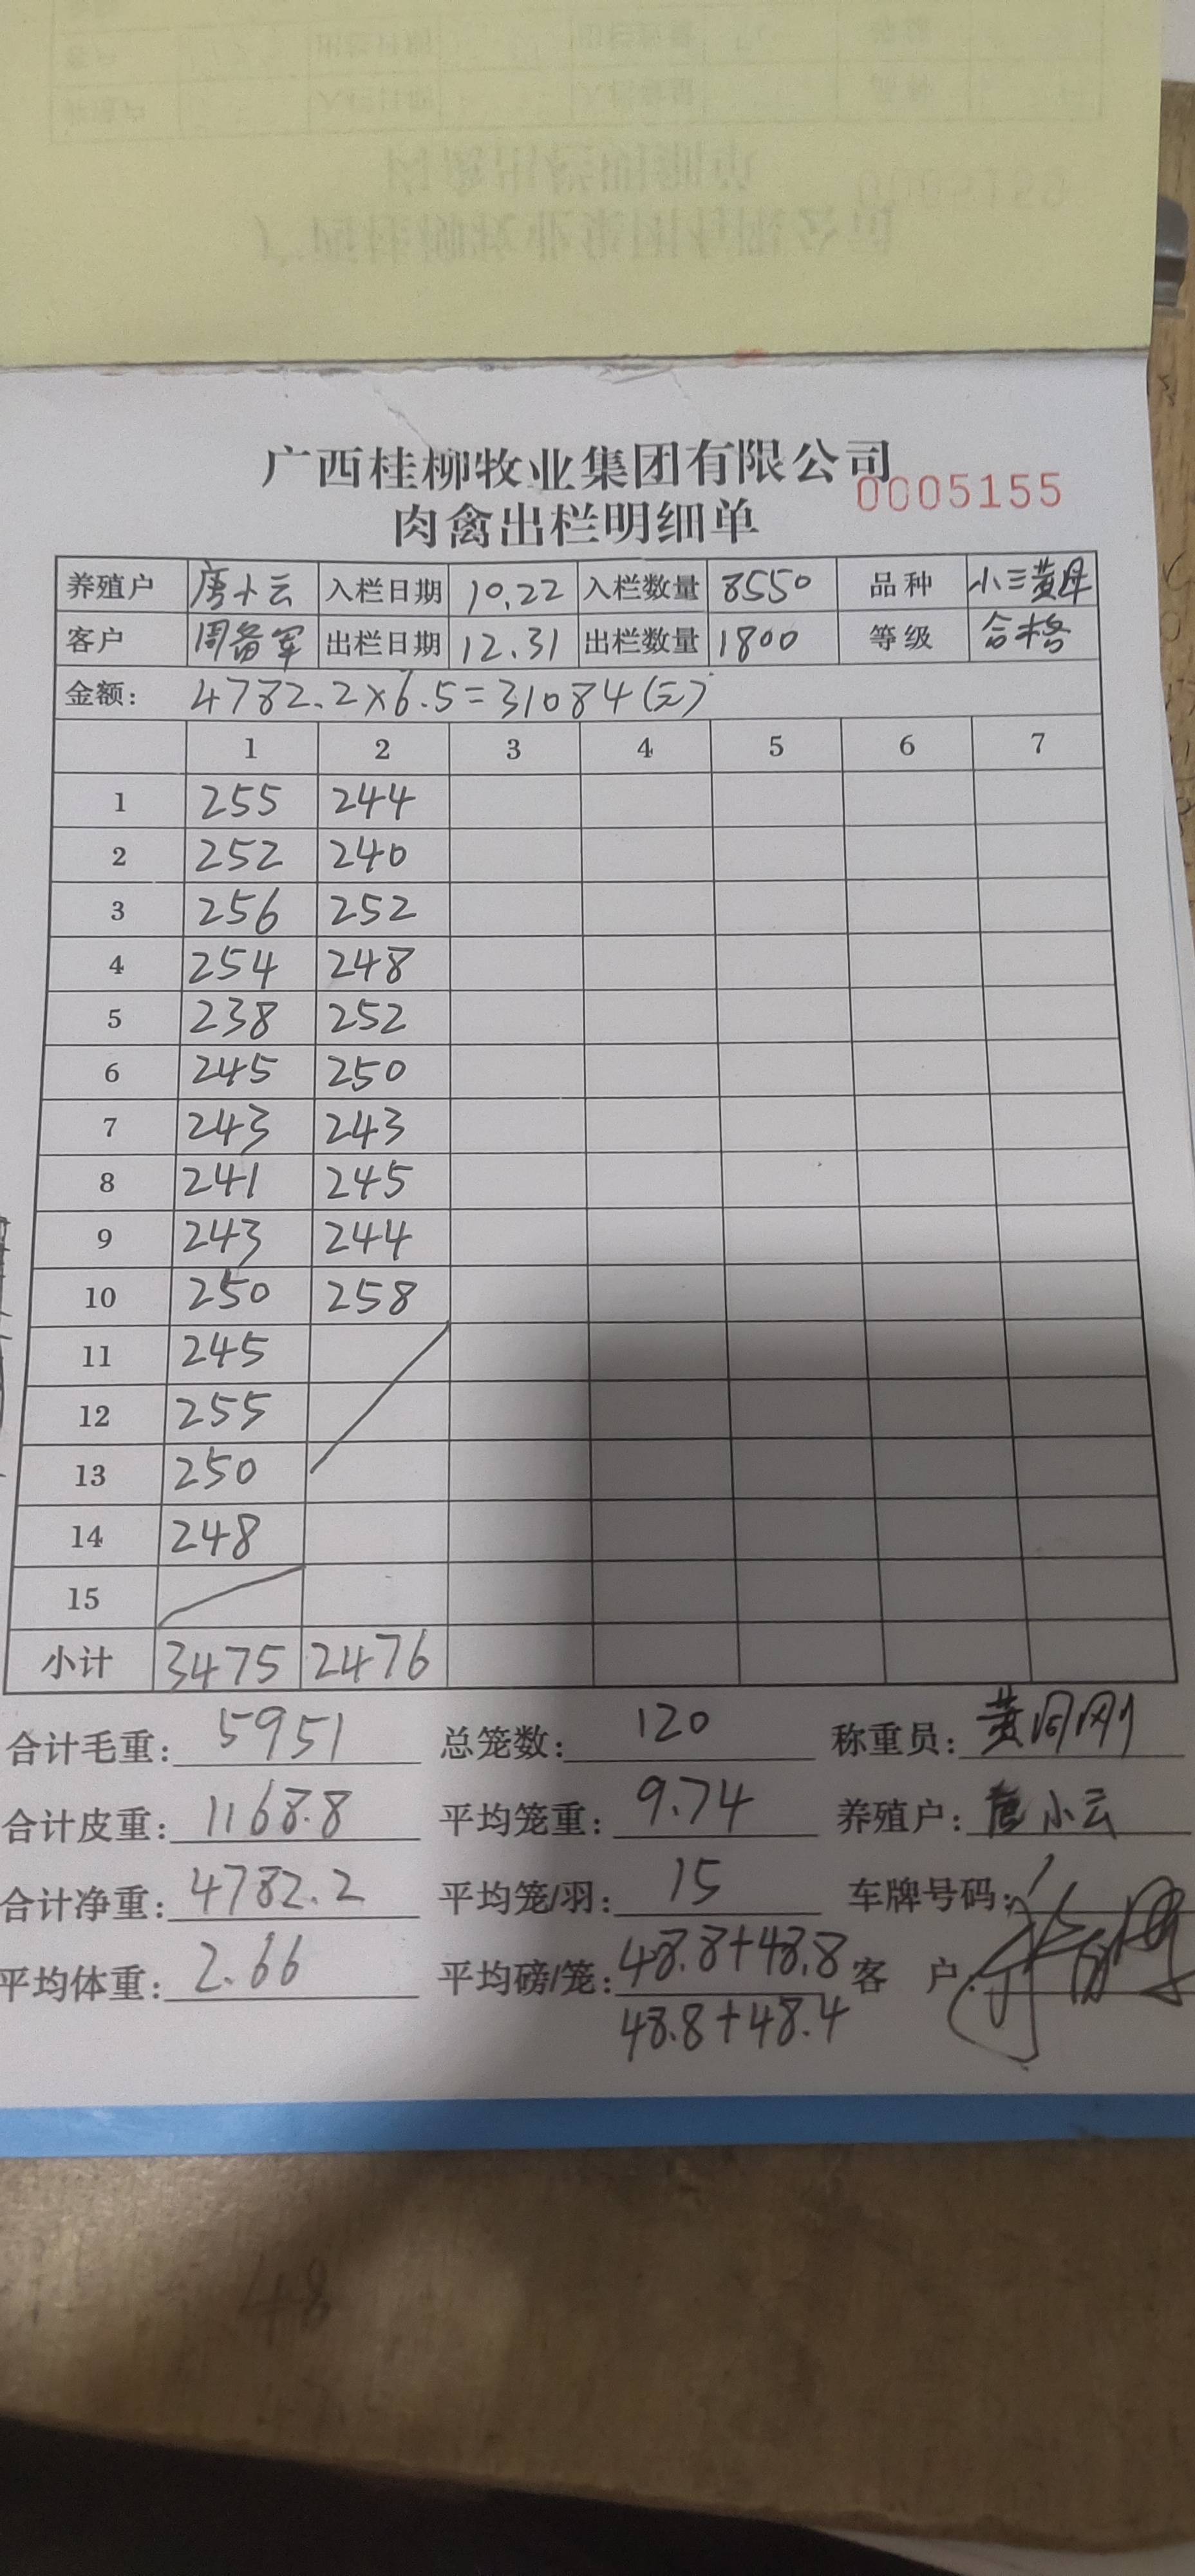 广西桂柳牧业集团有限公司
0005155
肉禽出栏明细单
养殖户 唐小云 入栏日期 10.22 入栏数量 8550 品种 小三黄母
客户 周备军 出栏日期 12.31 出栏数量 1800 等级 合格
金额: 4782.2×6.5=31084(元)
1 2 3 4 5 6 7
1 255 244
2 252 240
3 256 252
4 254 248
5 238 252
6 245 250
7 243 243
8 241 245
9 243 244
10 250 258
11 245
12 255
13 250
14 248
15
小计 3475 2476
合计毛重: 5951 总笼数: 120 称重员: 黄同刚
合计皮重: 1168.8 平均笼重: 9.74 养殖户: 唐小云
合计净重: 4782.2 平均笼/羽: 15 车牌号码:
平均体重: 2.66 平均磅/笼: 48.8+48.8 客 户:
48.8+48.4